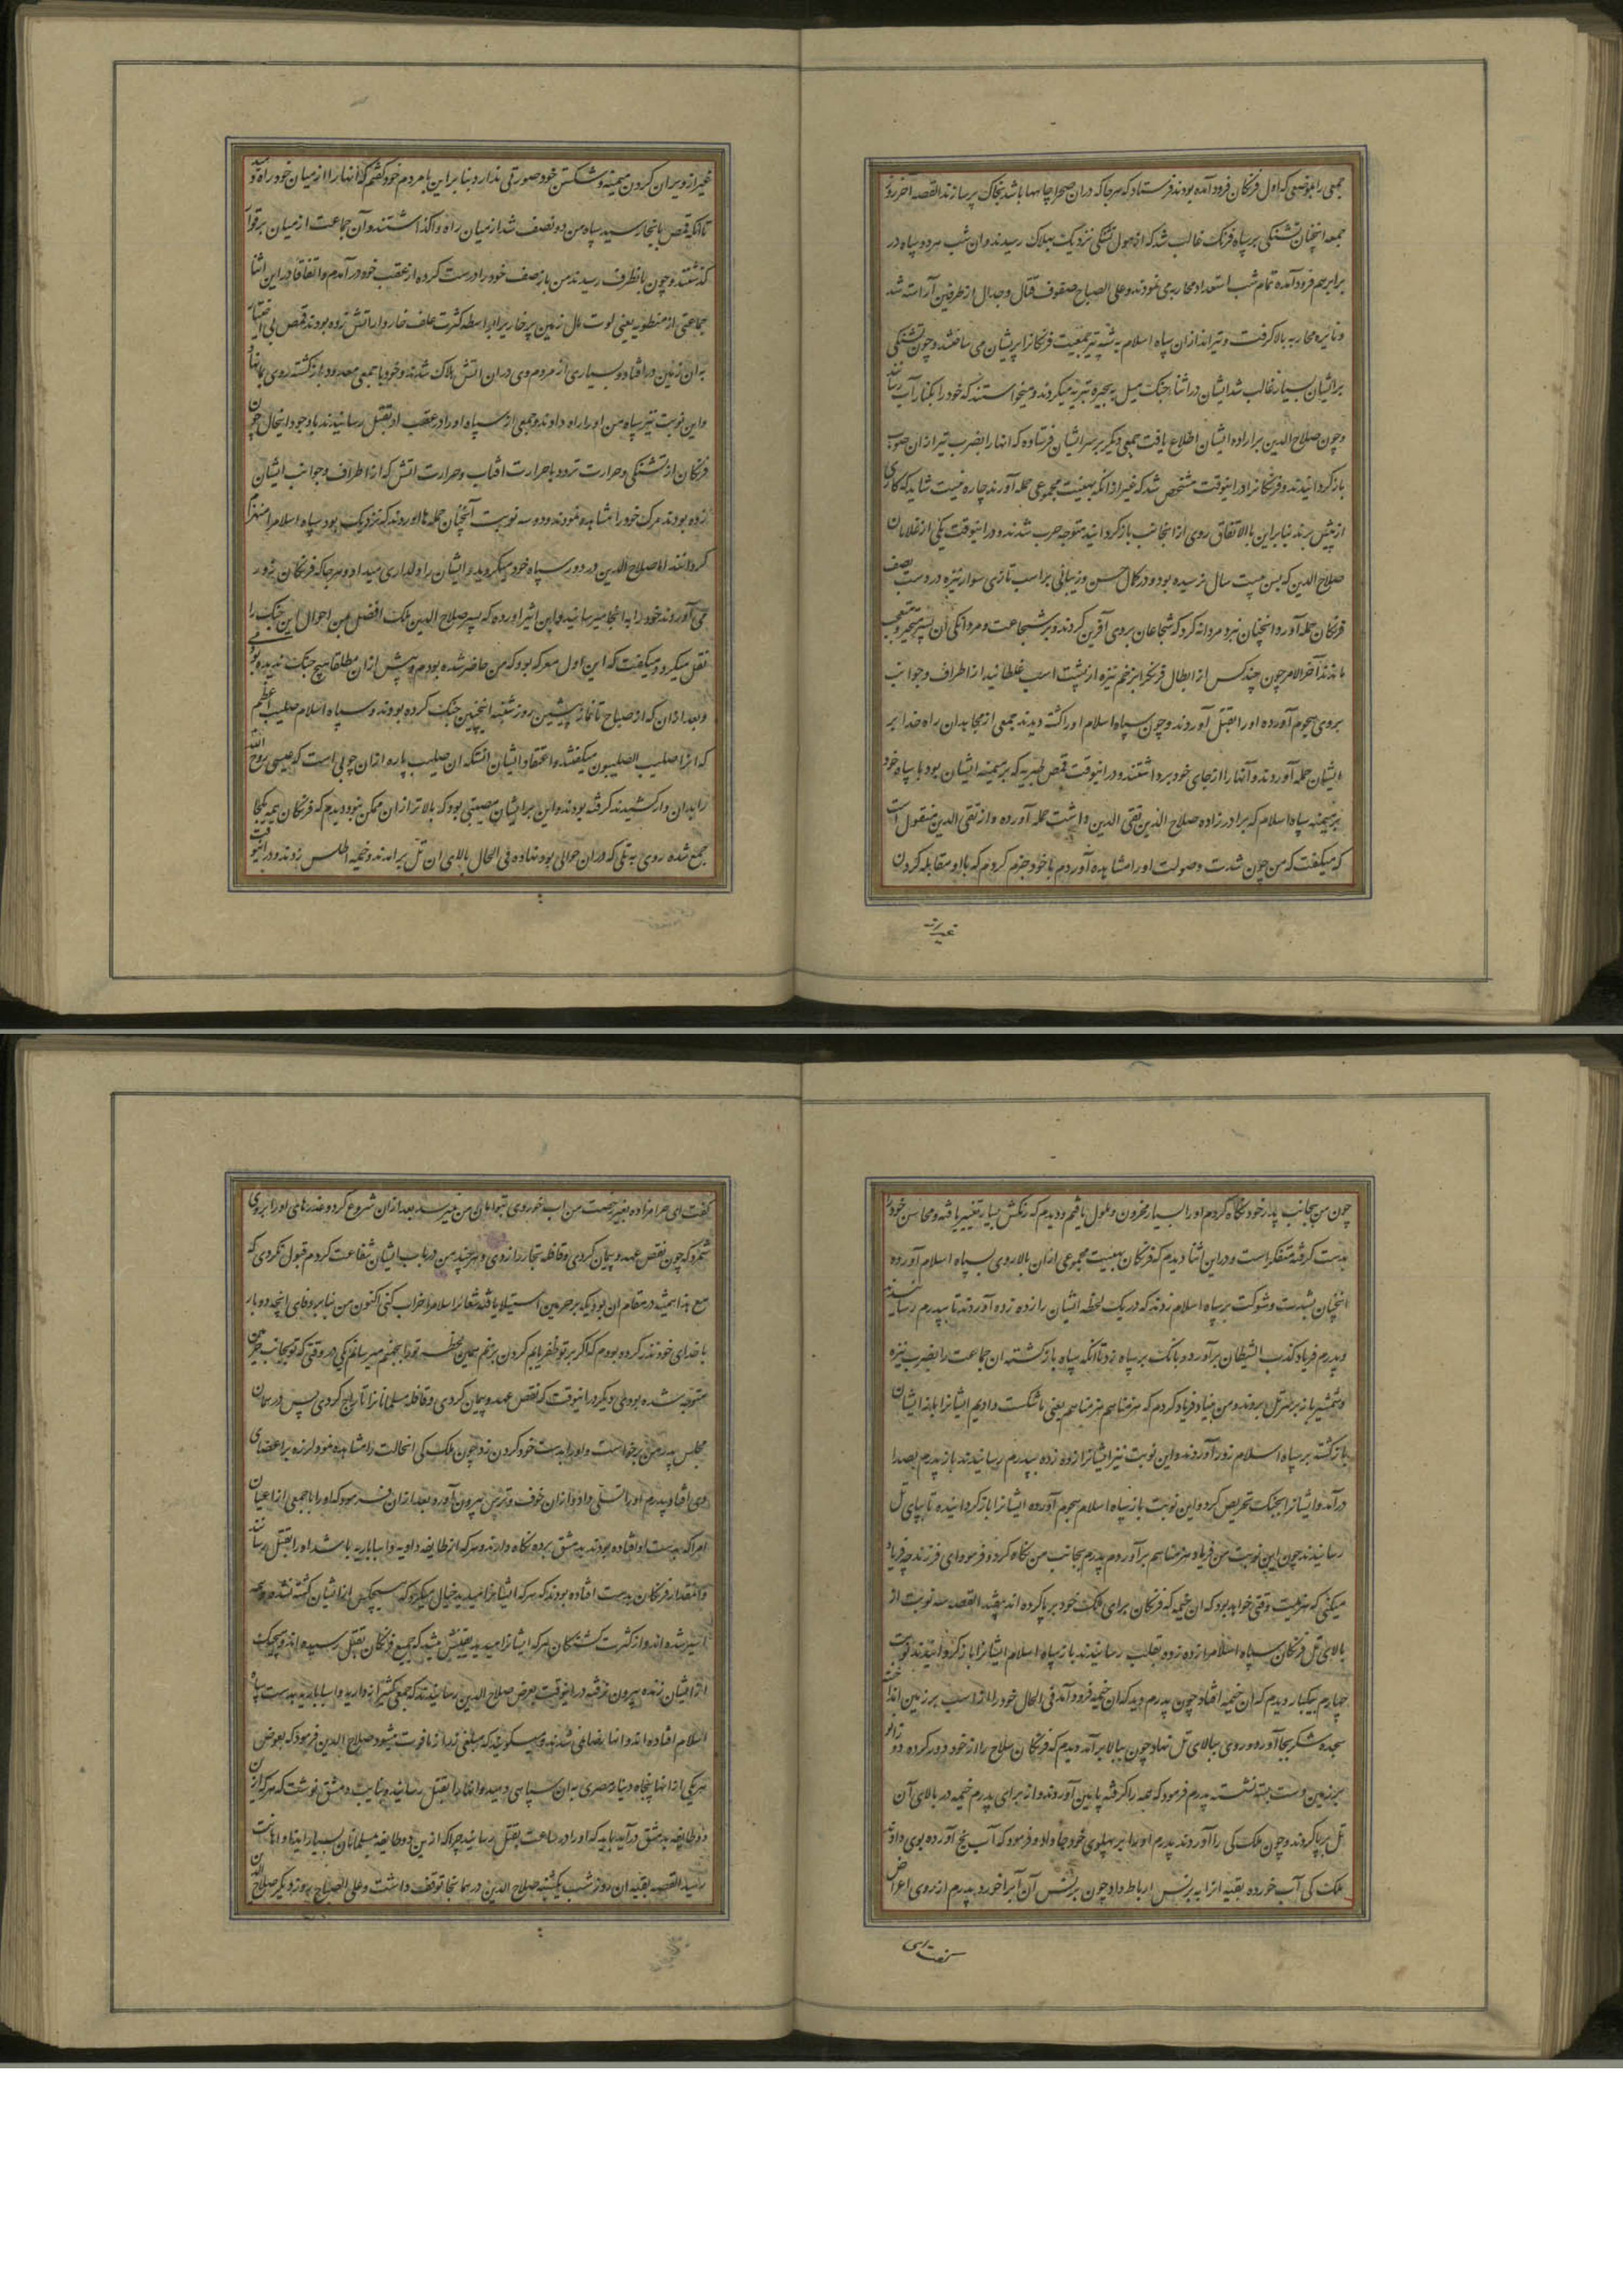 جمعی را بموضعی که اول فرنکان فرود آمده بودند فرستاد که هر جا که دران صحرا چاهها باشد بخاک پر سازند القصه آخر روز
جمعه انچنان تشنکی بر سپاه فرنک غالب شد که از هول تشنکی نزدیک بهلاک رسیدند و ان شب هر دو سپاه در
برابر هم فرود آمده تمام شب استعداد محاربه می نمودند و علی الصباح صفوف قتال و جدال از طرفین آراسته شد
و نایره محاربه بالا کرفت و تیراندازان سپاه اسلام به شیبه تیر جمعیت فرنکانرا پریشان می ساختند و چون تشنکی
بر ایشان بسیار غالب شد ایشان در اثناء جنک میل به بحیره تبریه میکردند و میخواستند که خود را بکنار آب رسانند
و چون صلاح الدین بر اراده ایشان اطلاع یافت جمعی دیکر بر سر ایشان فرستاده که انها را بضرب تیر از ان صوب
باز کردانیدند و فرنکانرا در اینوقت مشخص شد که غیر از انکه بهیئت مجموعی حمله آورند چاره نیست شاید که کاری
از پیش برند بنابراین بالاتفاق روی از انجانب باز کردانید متوجه حرب شدند و در اینوقت یکی از غلامان
صلاح الدین که بسن بیست سال نرسیده بود و در کمال حسن و زیبائی بر اسب تازی سوار نیزه در دست بصف
فرنکان حمله آورد و انچنان نبرد مردانه کرد که شجاعان بر وی آفرین کردند و بر شجاعت و مردانکی آن پسر متحیر و متعجب
ماندند آخرالامر چون چند کس از ابطال فرنک را بزخم نیزه از پشت اسب غلطانید از اطراف و جوانب
بر وی هجوم آورده او را بقتل آوردند و چون سپاه اسلام او را کشته دیدند جمعی از مجاهدان راه خدا بر
ایشان حمله آوردند و آنها را از جای خود برداشتند و در اینوقت قمص طبریه که بر میمنه ایشان بود با سپاه خود
بر میمنه سپاه اسلام که برادرزاده صلاح الدین تقی الدین داشت حمله آورده و از تقی الدین منقول است
که میکفت که من چون شدت و صولت او را مشاهده آوردم با خود جزم کردم که با او مقابله کردن
غیر از
غیر از ویران کردن میمنه و شکستن خود صورتی ندارد بنابراین با مردم خود کفتم که انها را از میان خود راه دهید
تا انکه قمص بانجا رسید سپاه من دو نصف شد از میان راه واکذاشتند و آن جماعت از میان برق‌وار
کذشتند و چون بانطرف رسیدند من باز صف خود را درست کرده از عقب خود در آمدم و اتفاقا در این اثنا
جماعتی از منطوبه یعنی لوت اول زمین پر خار را بواسطه کثرت علف خار و ارا تش زده بودند قمص بی اختیار
به ان زمین در افتاد و بسیاری از مردم وی در ان اتش هلاک شدند و خود با جمعی معدود باز کشته روی بما نهاد
و این نوبت نیز سپاه من او را راه دادند و جمعی از سپاه او را در عقب او بقتل رسانیدند با وجود اینحال چون
فرنکان از تشنکی و حرارت تردد با حرارت افتاب و حرارت اتش که از اطراف و جوانب ایشان
زده بودند مرک خود را مشاهده نمودند و دو سه نوبت آنچنان حمله ها اوردند که نزدیک بود سپاه اسلام را منهزم
کردانند اما صلاح الدین در دور سپاه خود میکردید و ایشان را دلداری میداد و هر جا که فرنکان زور
می آوردند خود را به انجا میرسانید و ابن اثیر آورده که پسر صلاح الدین ملک افضل من احوال این جنک را
نقل میکرد و میکفت که این اول معرکه بود که من حاضر شده بودم و پیش ازان مطلقا هیچ جنک ندیده بودم
و بعد از ان که از صباح تا نماز پیشین روز شنبه اینچنین جنک کرده بودند و سپاه اسلام صلیب اعظم
که انرا صلیب الصلیبون میکفتند و اعتقاد ایشان انستکه ان صلیب پاره ازان چوبی است که عیسی روح الله
را بدان وار کشیدند کرفته بودند و این بر ایشان مصیبتی بود که بالاتر از ان ممکن نبود دیدم که فرنکان همه یکجا
جمع شده روی به تلی که دران حوالی بود نهاده فی الحال بالای ان تل بر امدند و خیمه اطلس زدند و در اینوقت
چون من بجانب پدر خود نکاه کردم او را بسیار محزون و ملول یافتم و دیدم که رنکش بسیار تغییر یافته و محاسن خود را
بدست کرفته متفکر است و در این اثنا دیدم که فرنکان بهیئت مجموعی از ان بالا روی بسپاه اسلام آورده
انچنان بشدت و شوکت بر سپاه اسلام زدند که در یک لحظه ایشان را زده زده آوردند تا بپدرم رسانیدند
و پدرم فریاد کذب الشیطان بر آورد و بانک بر سپاه زد تا انکه سپاه باز کشته ان جماعت را بضرب نیزه
و شمشیر باز بر سر تل بردند و من بنیاد فریاد کردم که هزمناهم هزمناهم یعنی ما شکست دادیم ایشانرا باز ایشان
باز کشته بر سپاه اسلام زور آوردند و این نوبت نیز ایشانرا زده زده بپدرم رسانیدند باز پدرم بصدا
درآمد و ایشانرا بجنک تحریص کرد و این نوبت باز سپاه اسلام هجوم آورده ایشانرا باز کردانیده تا بپای تل
رسانیدند چون این نوبت من فریاد هزمناهم بر آوردم پدرم بجانب من نکاه کرد و فرمود ای فرزند چه فریاد
میکنی که هزیمت وقتی خواهد بود که ان خیمه که فرنکان برای ملک خود بر پا کرده اند بیفتد القصه سه نوبت از
بالای تل فرنکان سپاه اسلام را زده زده بقلب رسانیدند باز سپاه اسلام ایشانرا باز کردانیدند نوبت
چهارم بیکبار دیدم که ان خیمه افتاد چون پدرم دید که ان خیمه فرود آمد فی الحال خود را از اسب بر زمین انداخته
سجده شکر بجا آورد و روی ببالای تل نهاد چون ببالا برآمد دیدم که فرنکان سلاح را از خود دور کرده دو زانو
بر زمین دست بسته نشسته پدرم فرمود که همه را کرفته پایین آوردند و از برای پدرم خیمه در بالای آن
تل برپا کردند و چون ملک کی را آوردند پدرم او را بر پهلوی خود جا داد و فرمود که آب یخ آورده بوی دادند
ملک کی آب خورده بقیه انرا به برنس ارباط داد چون برنس آن آبرا خورد پدرم از روی اعراض
کفت ای
کفت ای حرامزاده بغیر رخصت من اب خوردی تو امان من نمیرسد بعد ازان شروع کرد و غدرهای او را بر وی
شمرد که چون نقض عهد و پیمان کردی و قافله تجار را زدی و هر چند من در باب ایشان شفاعت کردم قبول نکردی که
مع هذا همیشه در مقام ان بودی که بر حرمین استیلا یافته شعائر اسلام را خراب کنی اکنون من بنابر وفای انچه دوبار
با خدای خود نذر کرده بودم که اکر بر تو ظفر یابم کردن بزنم همین لحظه تو را بجهنم میرسانم یکی در وقتی که تو بجانب حرمین
متوجه شده بودی و دیکر در اینوقت که نقض عهد و پیمان کردی و قافله مسلمانانرا تاراج کردی پس در همان
مجلس پدرم برخواست و او را بدست خود کردن زد و چون ملک کی انحالت را مشاهده نمود لرزه بر اعضای
وی افتاد پدرم او را تسلی داد و ازان خوف و ترس بیرون آورد و بعد ازان فرمود که او را با جمعی از اعیان
امرا که بدست او افتاده بودند به دمشق برده نکاه دارند و هر که از طایفه داویه و اسباباریه باشد او را بقتل رسانند
و انقدر از فرنکان بدست افتاده بودند که هر که ایشانرا میدید خیال میکرد که هیچکس از ایشان کشته نشده همه
اسیر شده اند و از کثرت کشتکان هر که ایشانرا میدید یقینش میشد که جمیع فرنکان بقتل رسیده اند و هیچیک
از ایشان زنده بیرون نرفته در اینوقت بعرض صلاح الدین رسانیدند که جمعی کثیر از داویه و اسباباریه بدست سپاه
اسلام افتاده اند و انها بضایع شدند و میکویند که مبلغی زر از ما فوت میشود صلاح الدین فرمود که بعوض
هر یکی از انها پنجاه دینار مصری به ان سپاهی دهید و انها را بقتل رسانید و بنایب دمشق نوشت که هر که از این
دو طایفه بدمشق درآید باید که او را در ساعت بقتل رسانید چرا که ازین دو طایفه مسلمانان بسیار ایذا و اهانت
رسید القصه بقیه ان روز و شب یکشنبه صلاح الدین در همانجا توقف داشت و علی الصباح روز دیکر صلاح الدین